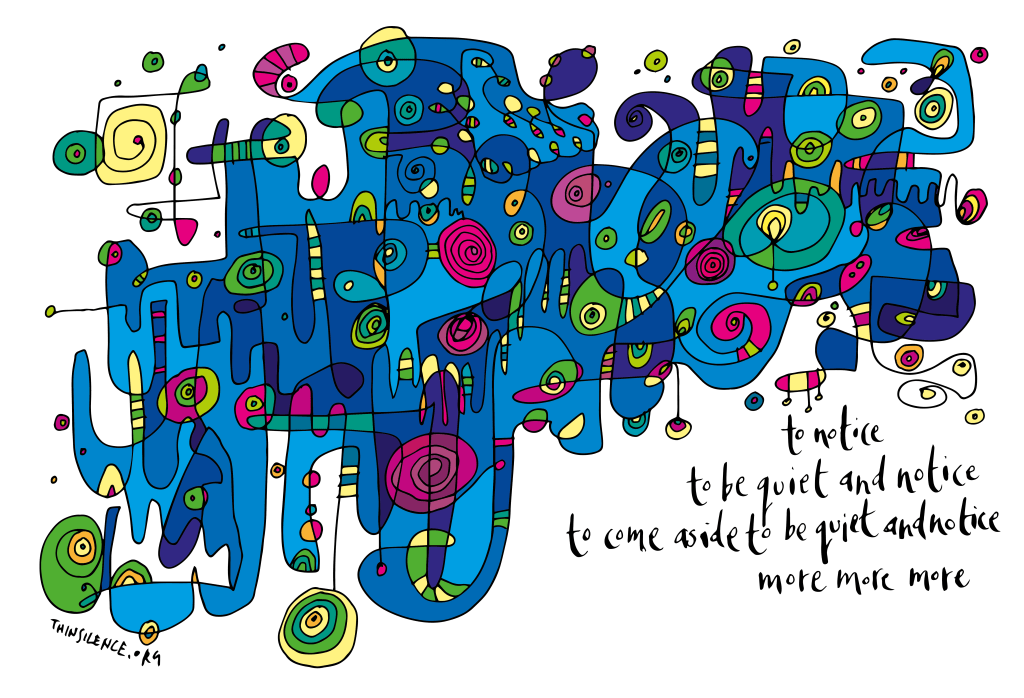 to notice
to be quiet and notice
to come aside to be quiet and notice
more more more
THINSILENCE.ORG